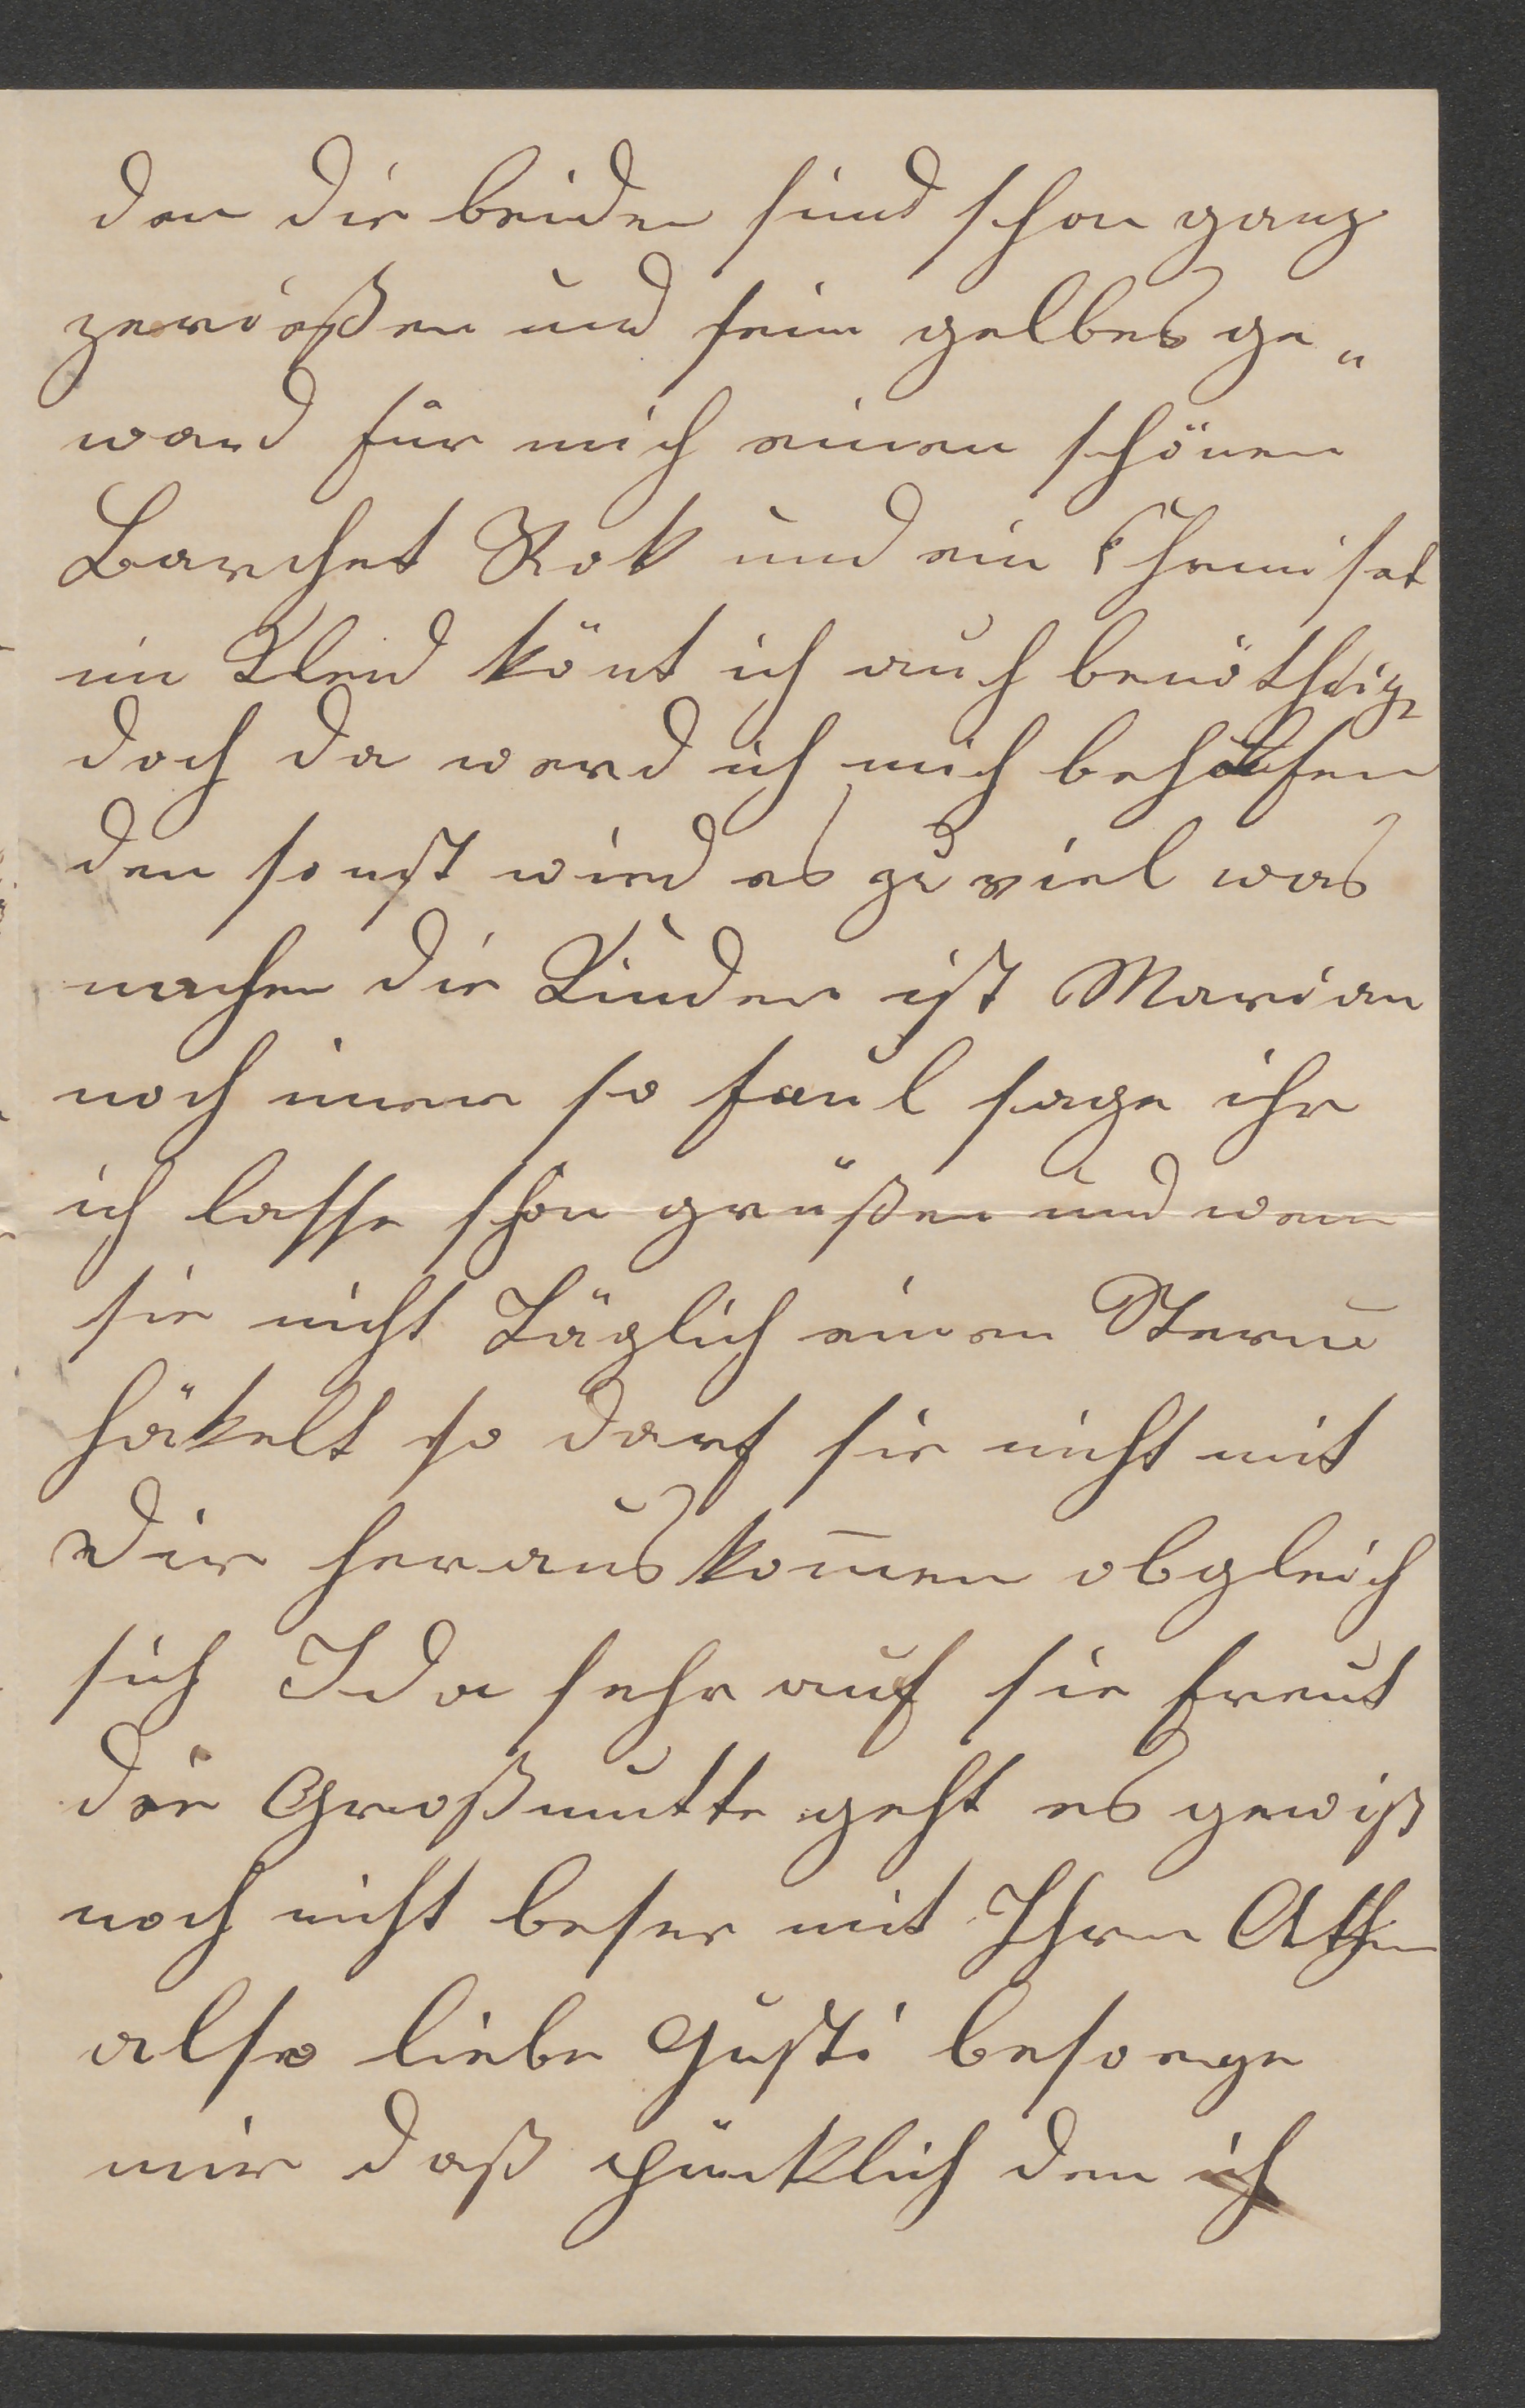 den die beiden sind schon ganz
zerrießen und sein gelbes ge„
ward für mich einen schönen
Barchet Rok und ein Chemiset
im Kleid könt ich auch benöthig
doch da werd ich mich behelfen
den sonst wird es zu viel was
machen die Kinder ist Marian
noch imer so faul sage ihr
ich lasse schön grüßen und wen
sie nicht Täglich einen Stern
häkelt so darf sie nicht mit
Dir heraus kom̅en obgleich
sich Ida sehr auf sie freut
die Großmutte geht es gewiß
noch nicht beser mit Ihren Athen
also liebe Gusti besorge
mir daß pünklich den ich